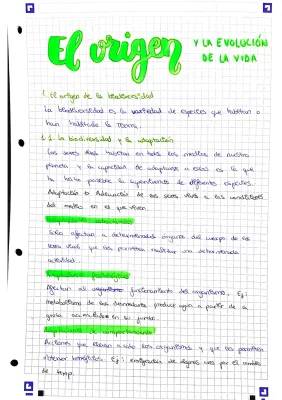 El origen
Y LA EVOLUCIÓN
DE LA VIDA
1. El origen de la biodiversidad
La biodiversidad es la variedad de especies que habitan o
han habitado la Tierra.
1.1. La biodiversidad y la adaptación
Los seres vivos habitan en todos los medios de nuestro
planeta y la capacidad de adaptarse a ellos es la que
ha hecho posible la aparición de diferentes especies.
Adaptación: Adecuación de los seres vivos a las condiciones
del medio en el que viven.
Solo afectan a determinados órganos del cuerpo de los
seres vivos que les permiten realizar una determinada
actividad.
Afectan al funcionamiento del organismo. Ej:
metabolismo de los dromedarios produce agua a partir de la
grasa acumulada en su joroba.
Adaptaciones de comportamiento
Acciones que llevan a cabo los organismos y que les permiten
obtener beneficios. Ej: emigración de algunas aves por el cambio
de temp.